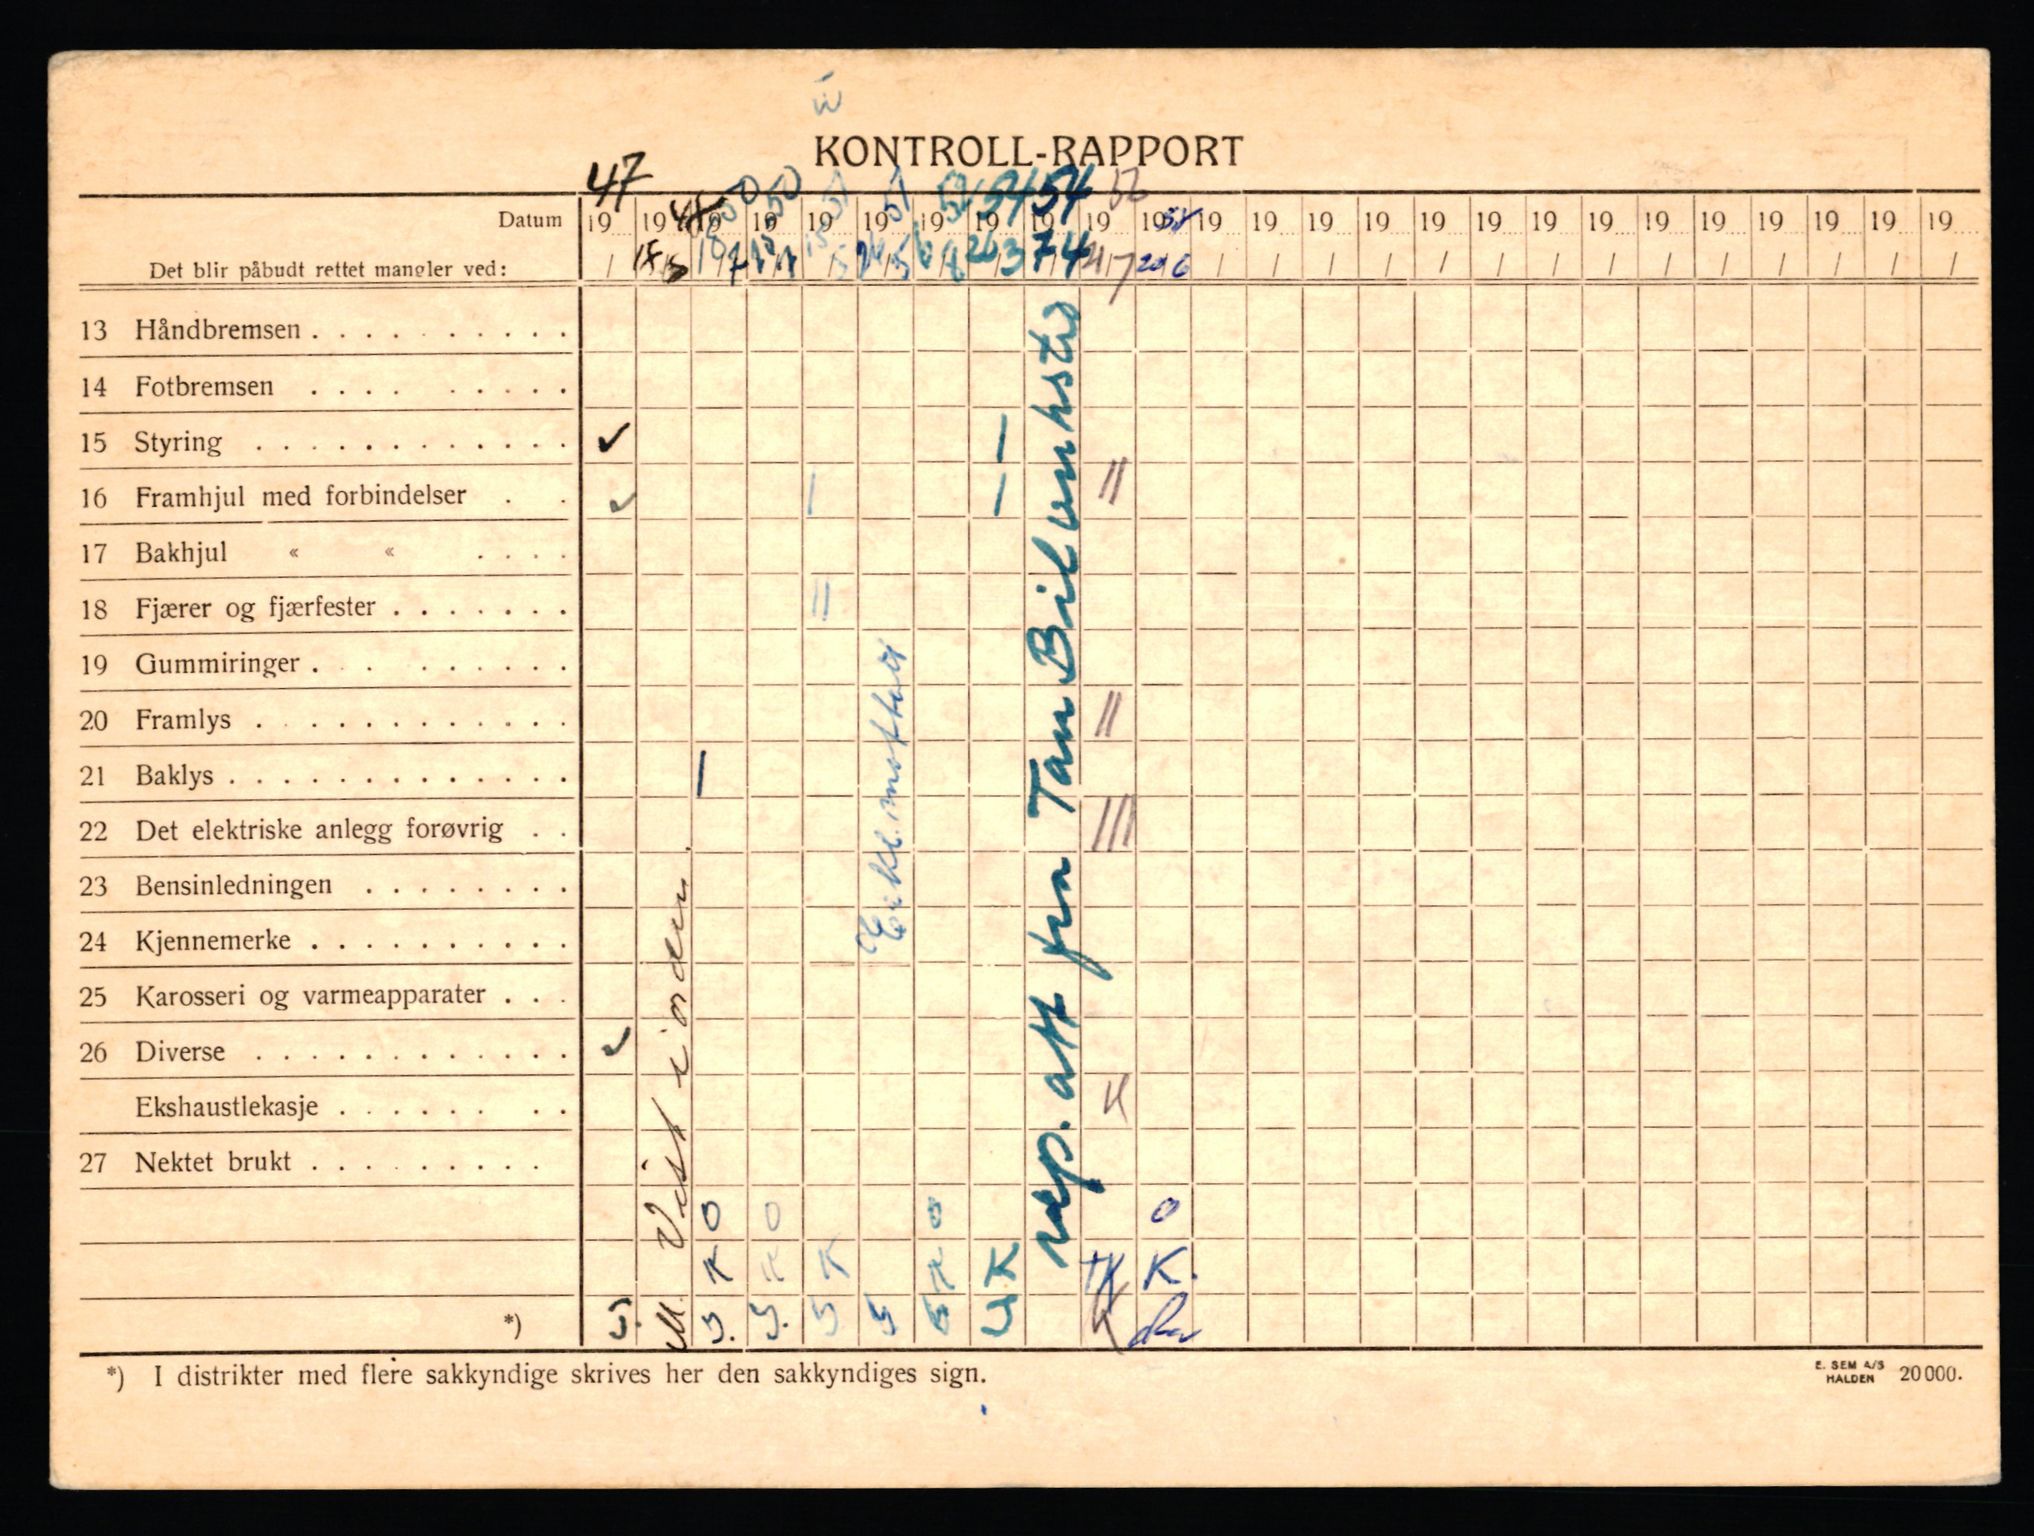 KONTROLL-RAPPORT
47 48 50 50 51 51 52 54 54 56 58
Datum 19 19 19 19 19 19 19 19 19 19 19 19 19 19 19 19 19 19 19 19 19 19 19 19 19
Det blir påbudt rettet mangler ved: 26/3 7/4 20/6
13 Håndbremsen
14 Fotbremsen
15 Styring ✓ |
16 Framhjul med forbindelser ✓ | | ||
17 Bakhjul « «
18 Fjærer og fjærfester ||
19 Gummiringer
20 Framlys ||
21 Baklys |
22 Det elektriske anlegg forøvrig |||
23 Bensinledningen
24 Kjennemerke
25 Karosseri og varmeapparater
26 Diverse ✓
Ekshaustlekasje
27 Nektet brukt
Vist i orden.
rep. att fra Tan Bilverksted
O O O O
K K K K K K K.
*)
*) I distrikter med flere sakkyndige skrives her den sakkyndiges sign.
E. SEM A/S
HALDEN 20 000.